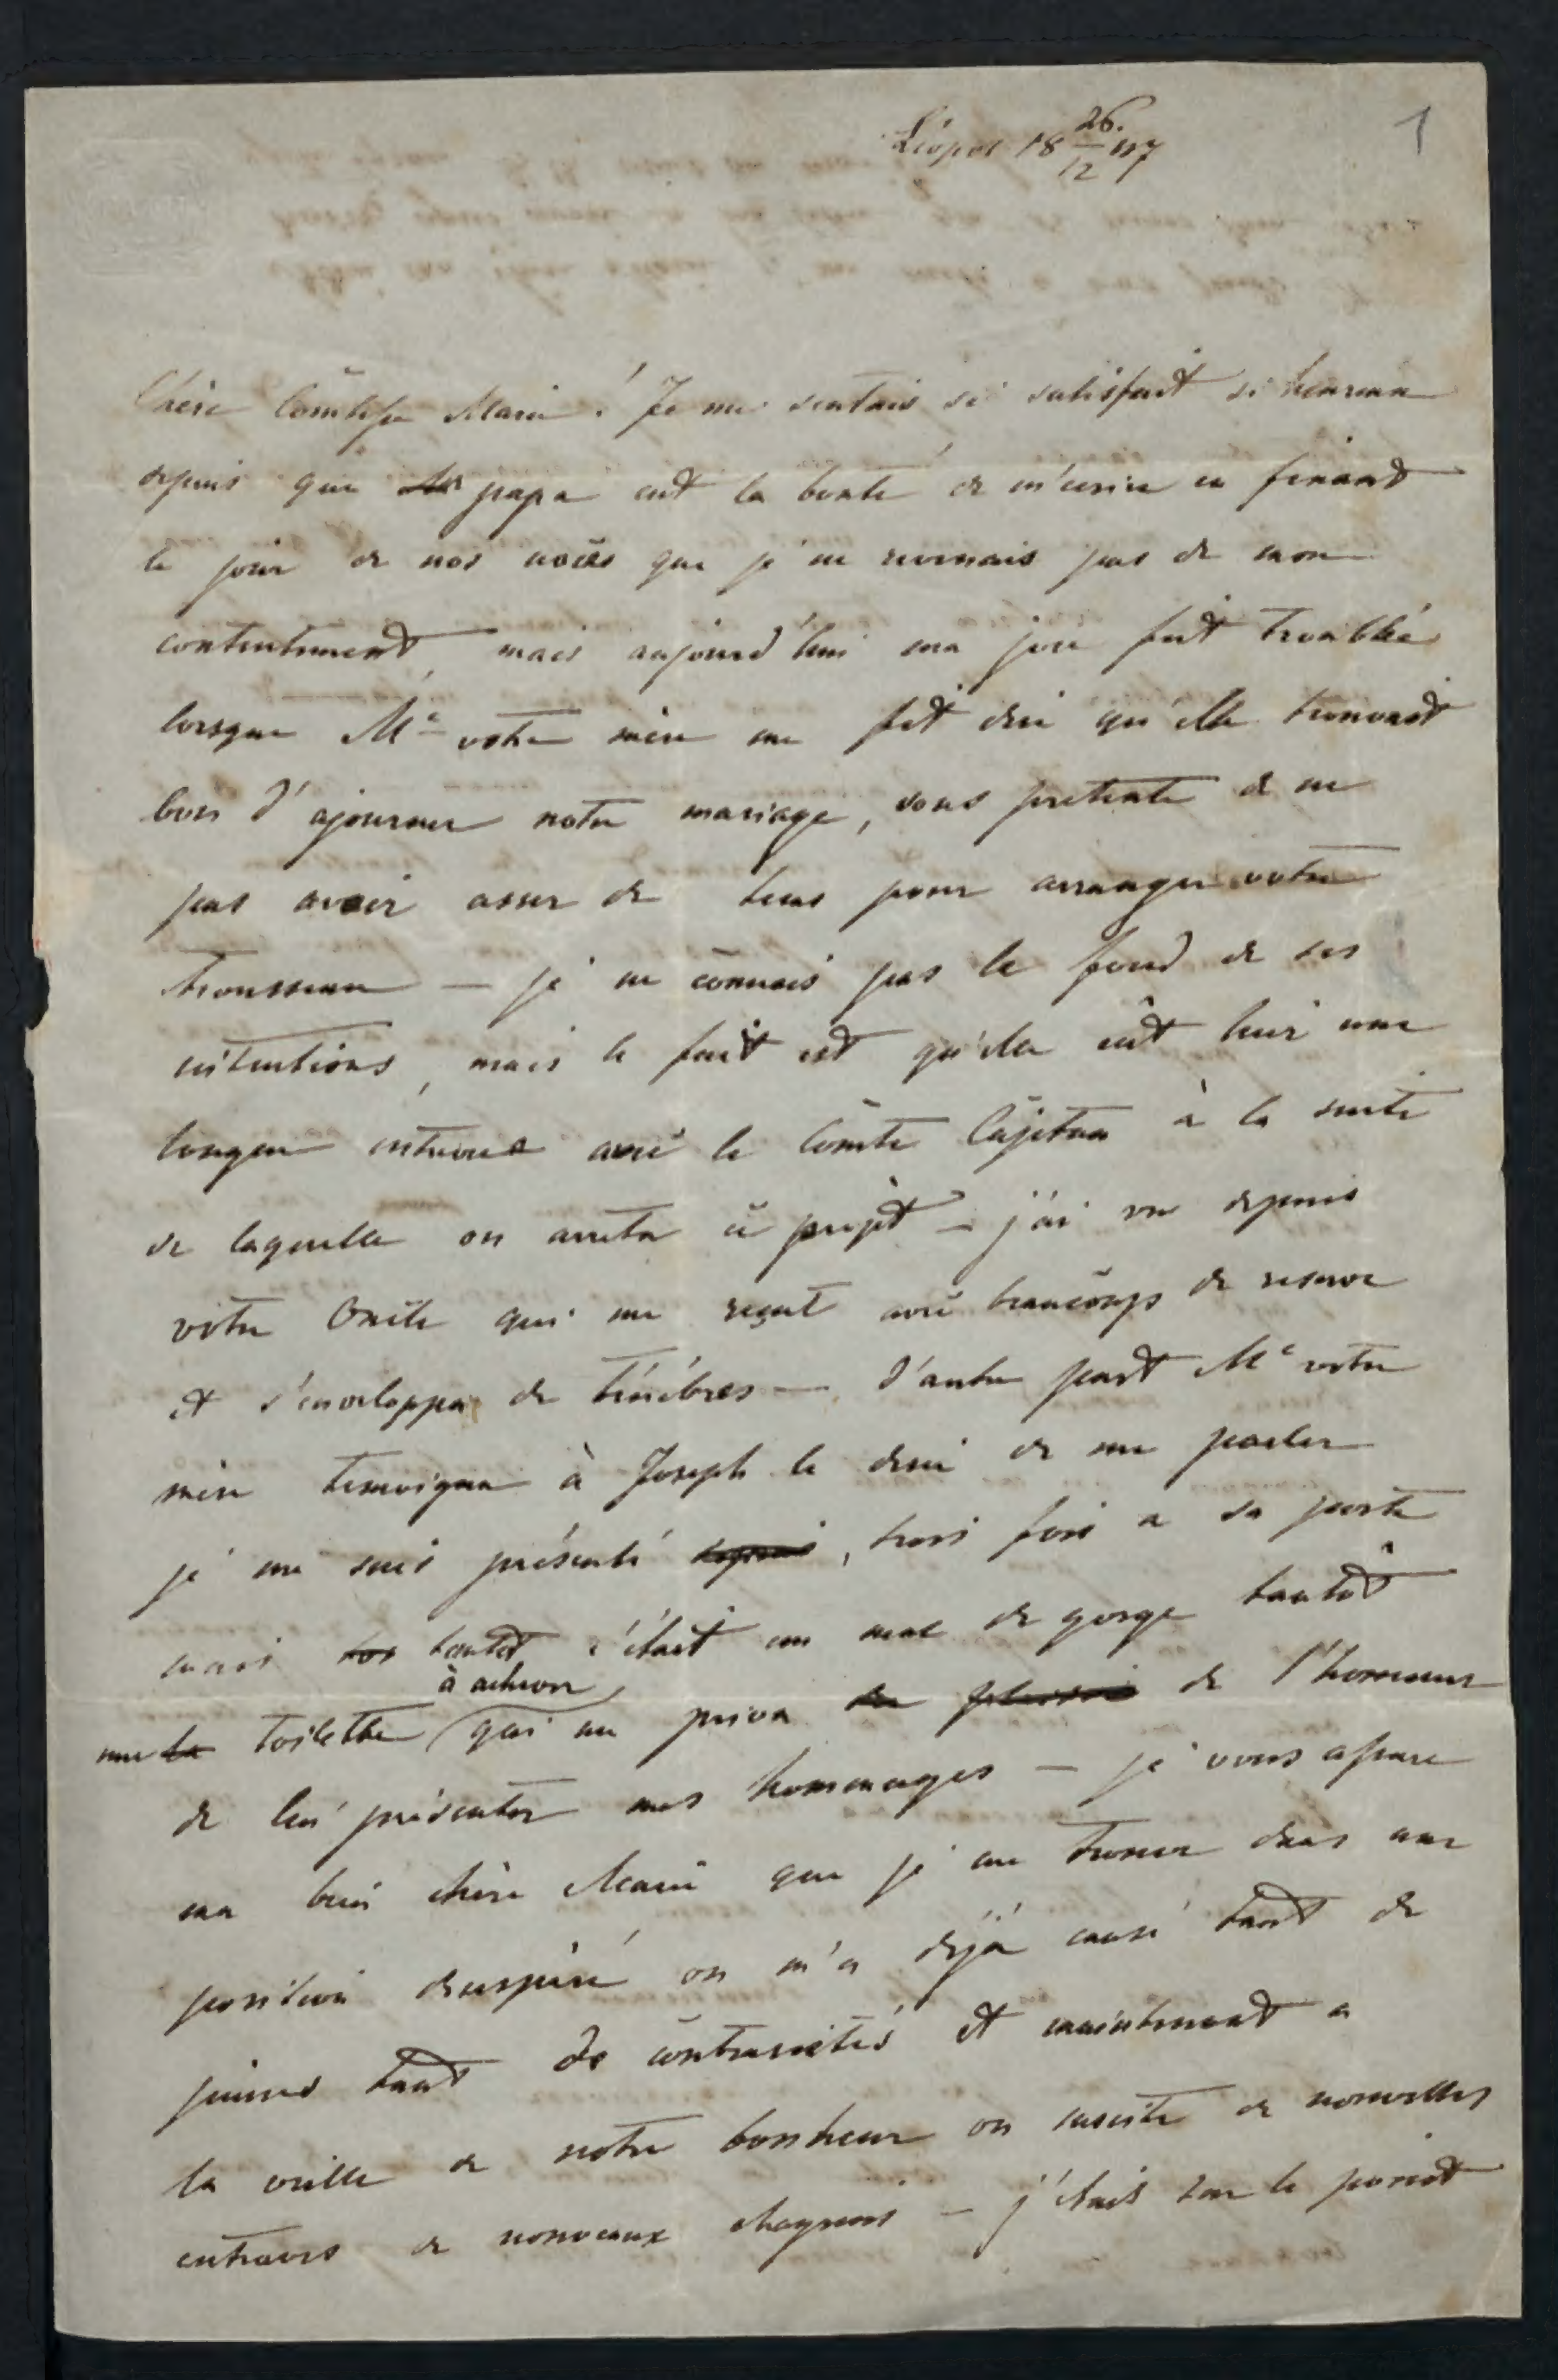 1
Léopol 18 26./12 47
Chère Comtesse Marie! Je me sentais si satisfait si heureux
depuis que papa eut la bonté de m'ecrire en fixant
le jour de nos noces que je ne revenais pas de mon
contentement, mais aujourd'hui ma joie fut troublée
lorsque Me votre mère me fit dire qu'elle trouvait
bon d'ajourner notre mariage, sous pretexte de ne
pas avoir assez de tems pour arranger votre
trousseau — je ne connais pas le fond de ses
intentions, mais le fait est qu'elle eut hier une
longue entrevue avec le Comte Cajetan à la suite
de laquelle on arreta ce projèt — j'ai vu depuis
votre Oncle qui me reçut avec beaucoups de reserve
et s'enveloppa de ténèbres — d'autre part Me votre
mère temoigna à Joseph le desir de me parler
je me suis présenté, trois fois a sa porte
mais tantot c'était un mal de gorge tantôt
une toilette à achever qui me priva de l'honneur
de lui présenter mes hommages — je vous assure
ma bien chère Marie que je me trouve dans une
position desesperé on m'a déjà causé tant de
peines tant de contrarietés et maintenant a
la veille de notre bonheur on suscite de nouvelles
entraves de nouveaux chagrins — j'étais sur le point